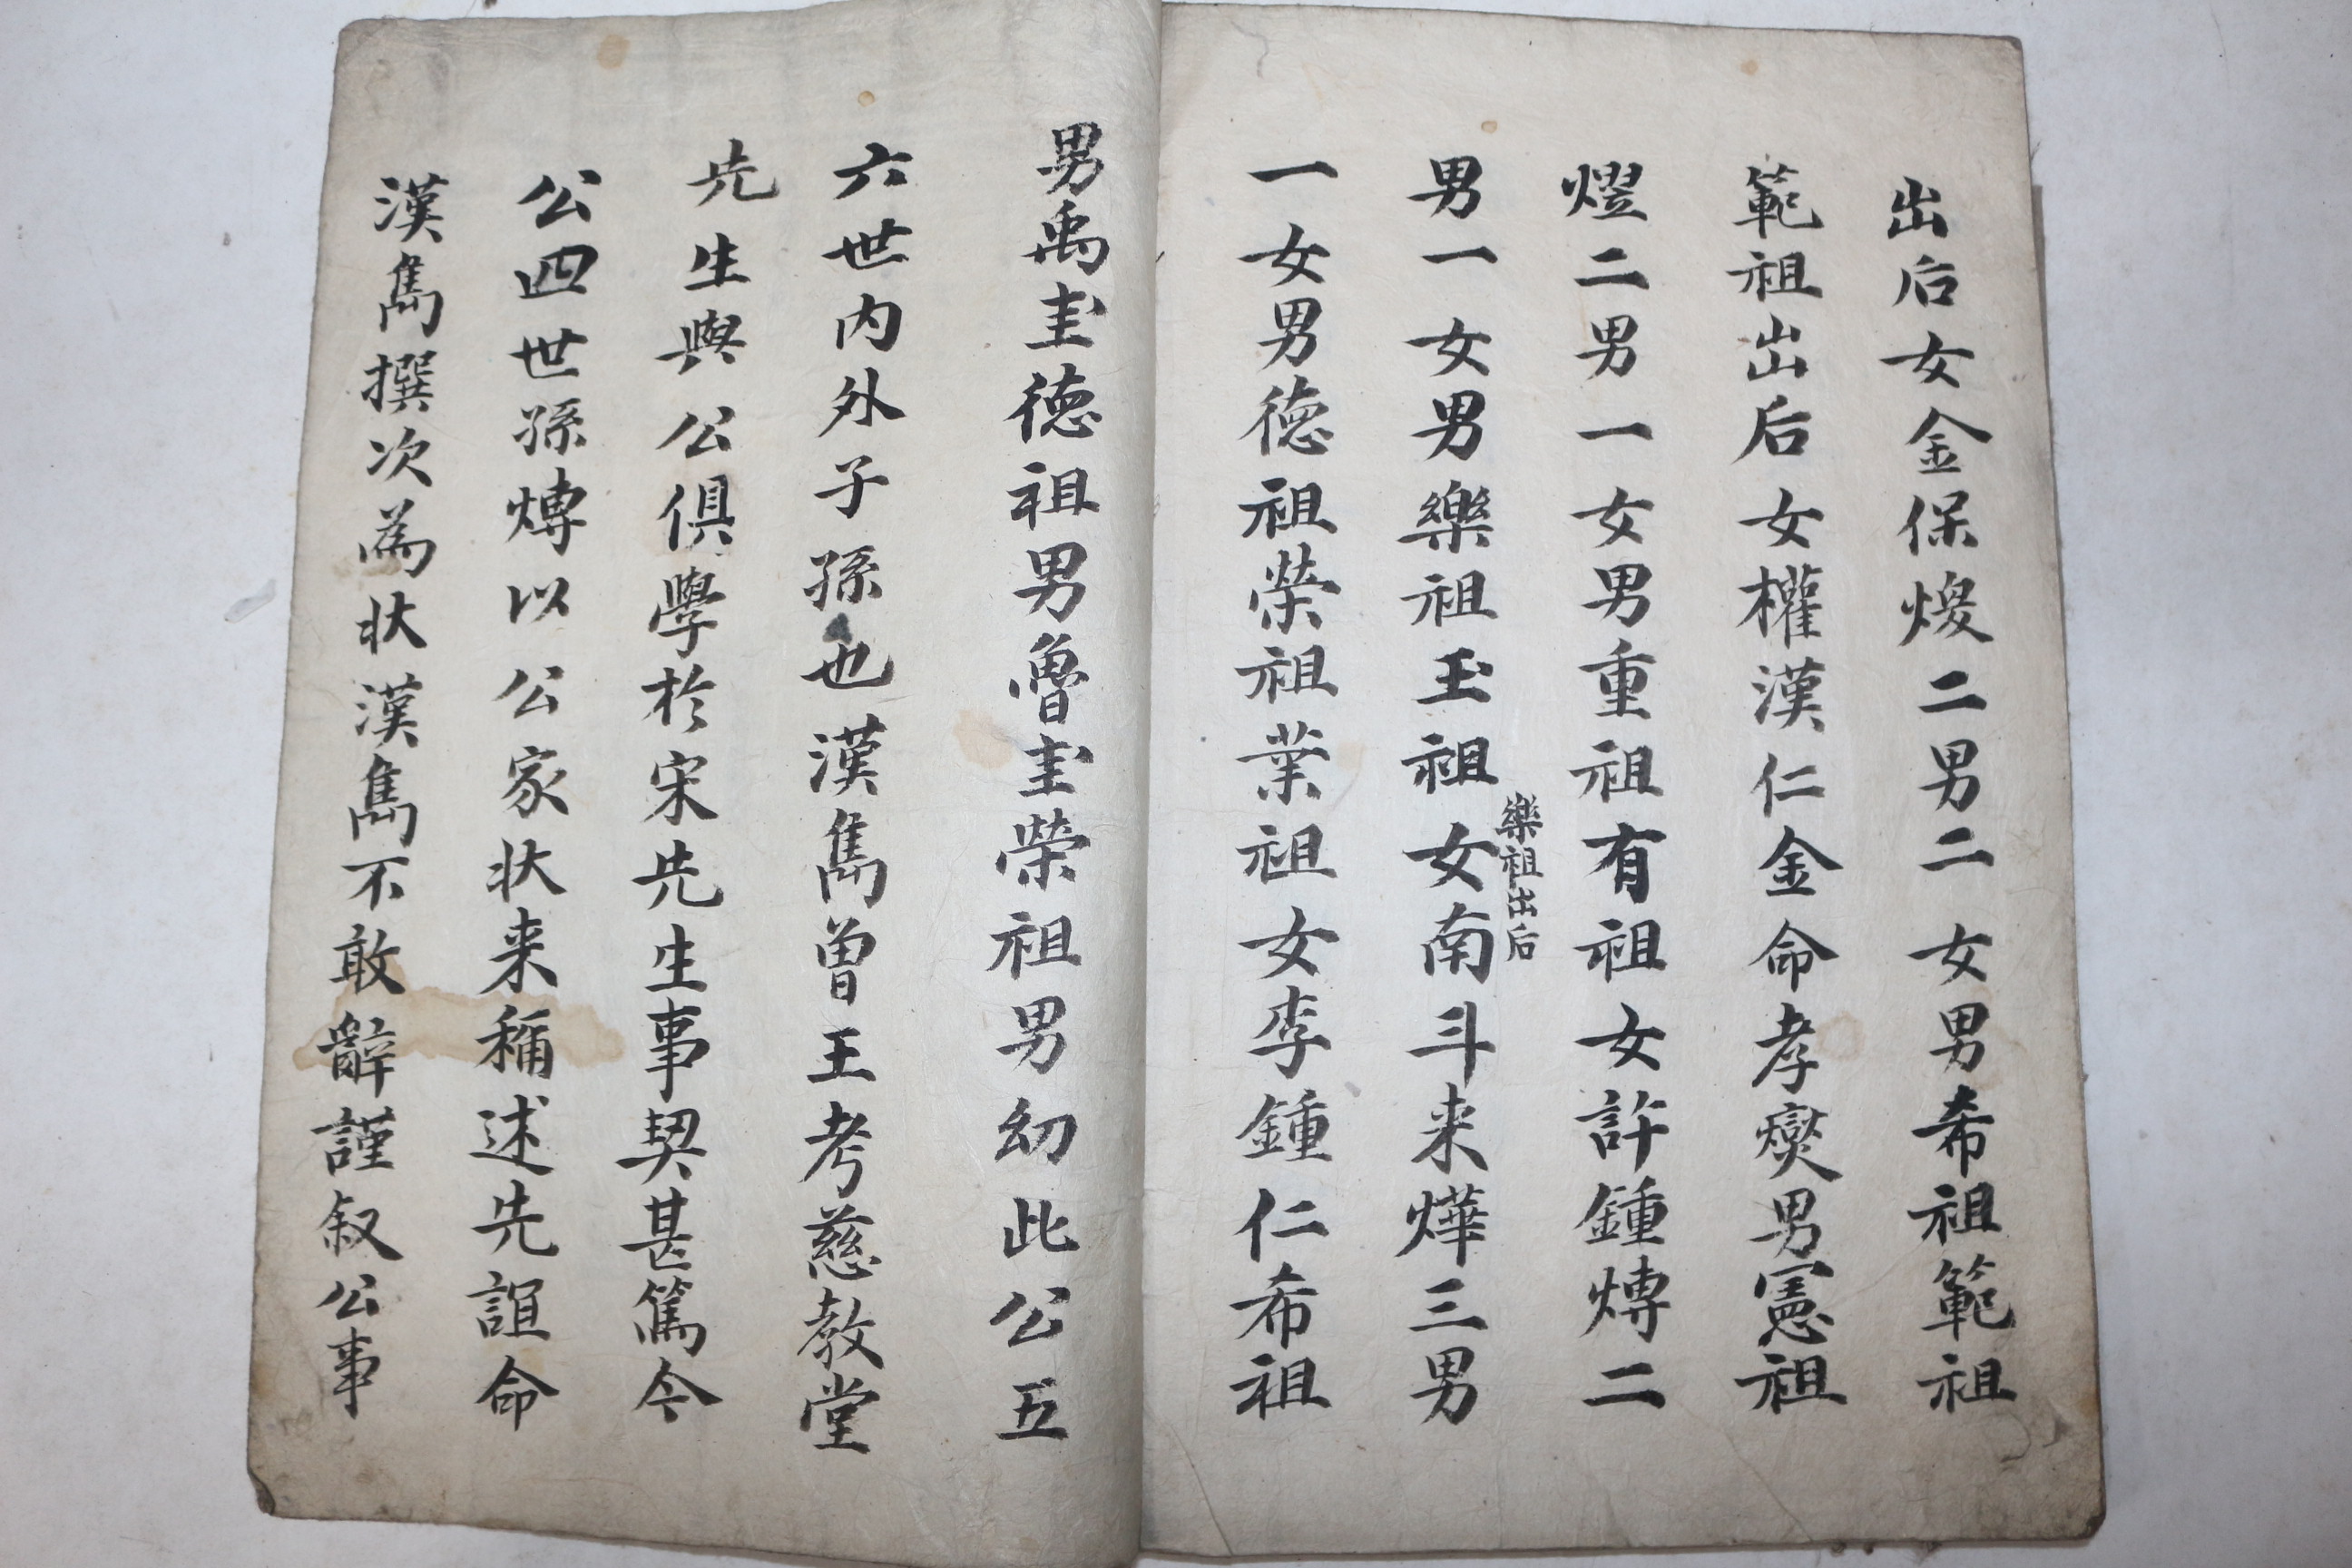 出后女金保煖二男二女男希祖範祖
範祖出后女權漢仁金命孝燮男憲祖
熤二男一女男重祖有祖女許鍾煿二
男一女男樂祖玉祖女南斗来燁三男
樂祖出后
一女男德祖榮祖業祖女李鍾仁希祖
男禹圭德祖男魯圭榮祖男幼此公五
六世内外子孫也漢雋曾王考慈教堂
先生與公俱學於宋先生事契甚篤今
公四世孫煿以公家状来稱述先誼命
漢雋撰次為状漢雋不敢辭謹叙公事